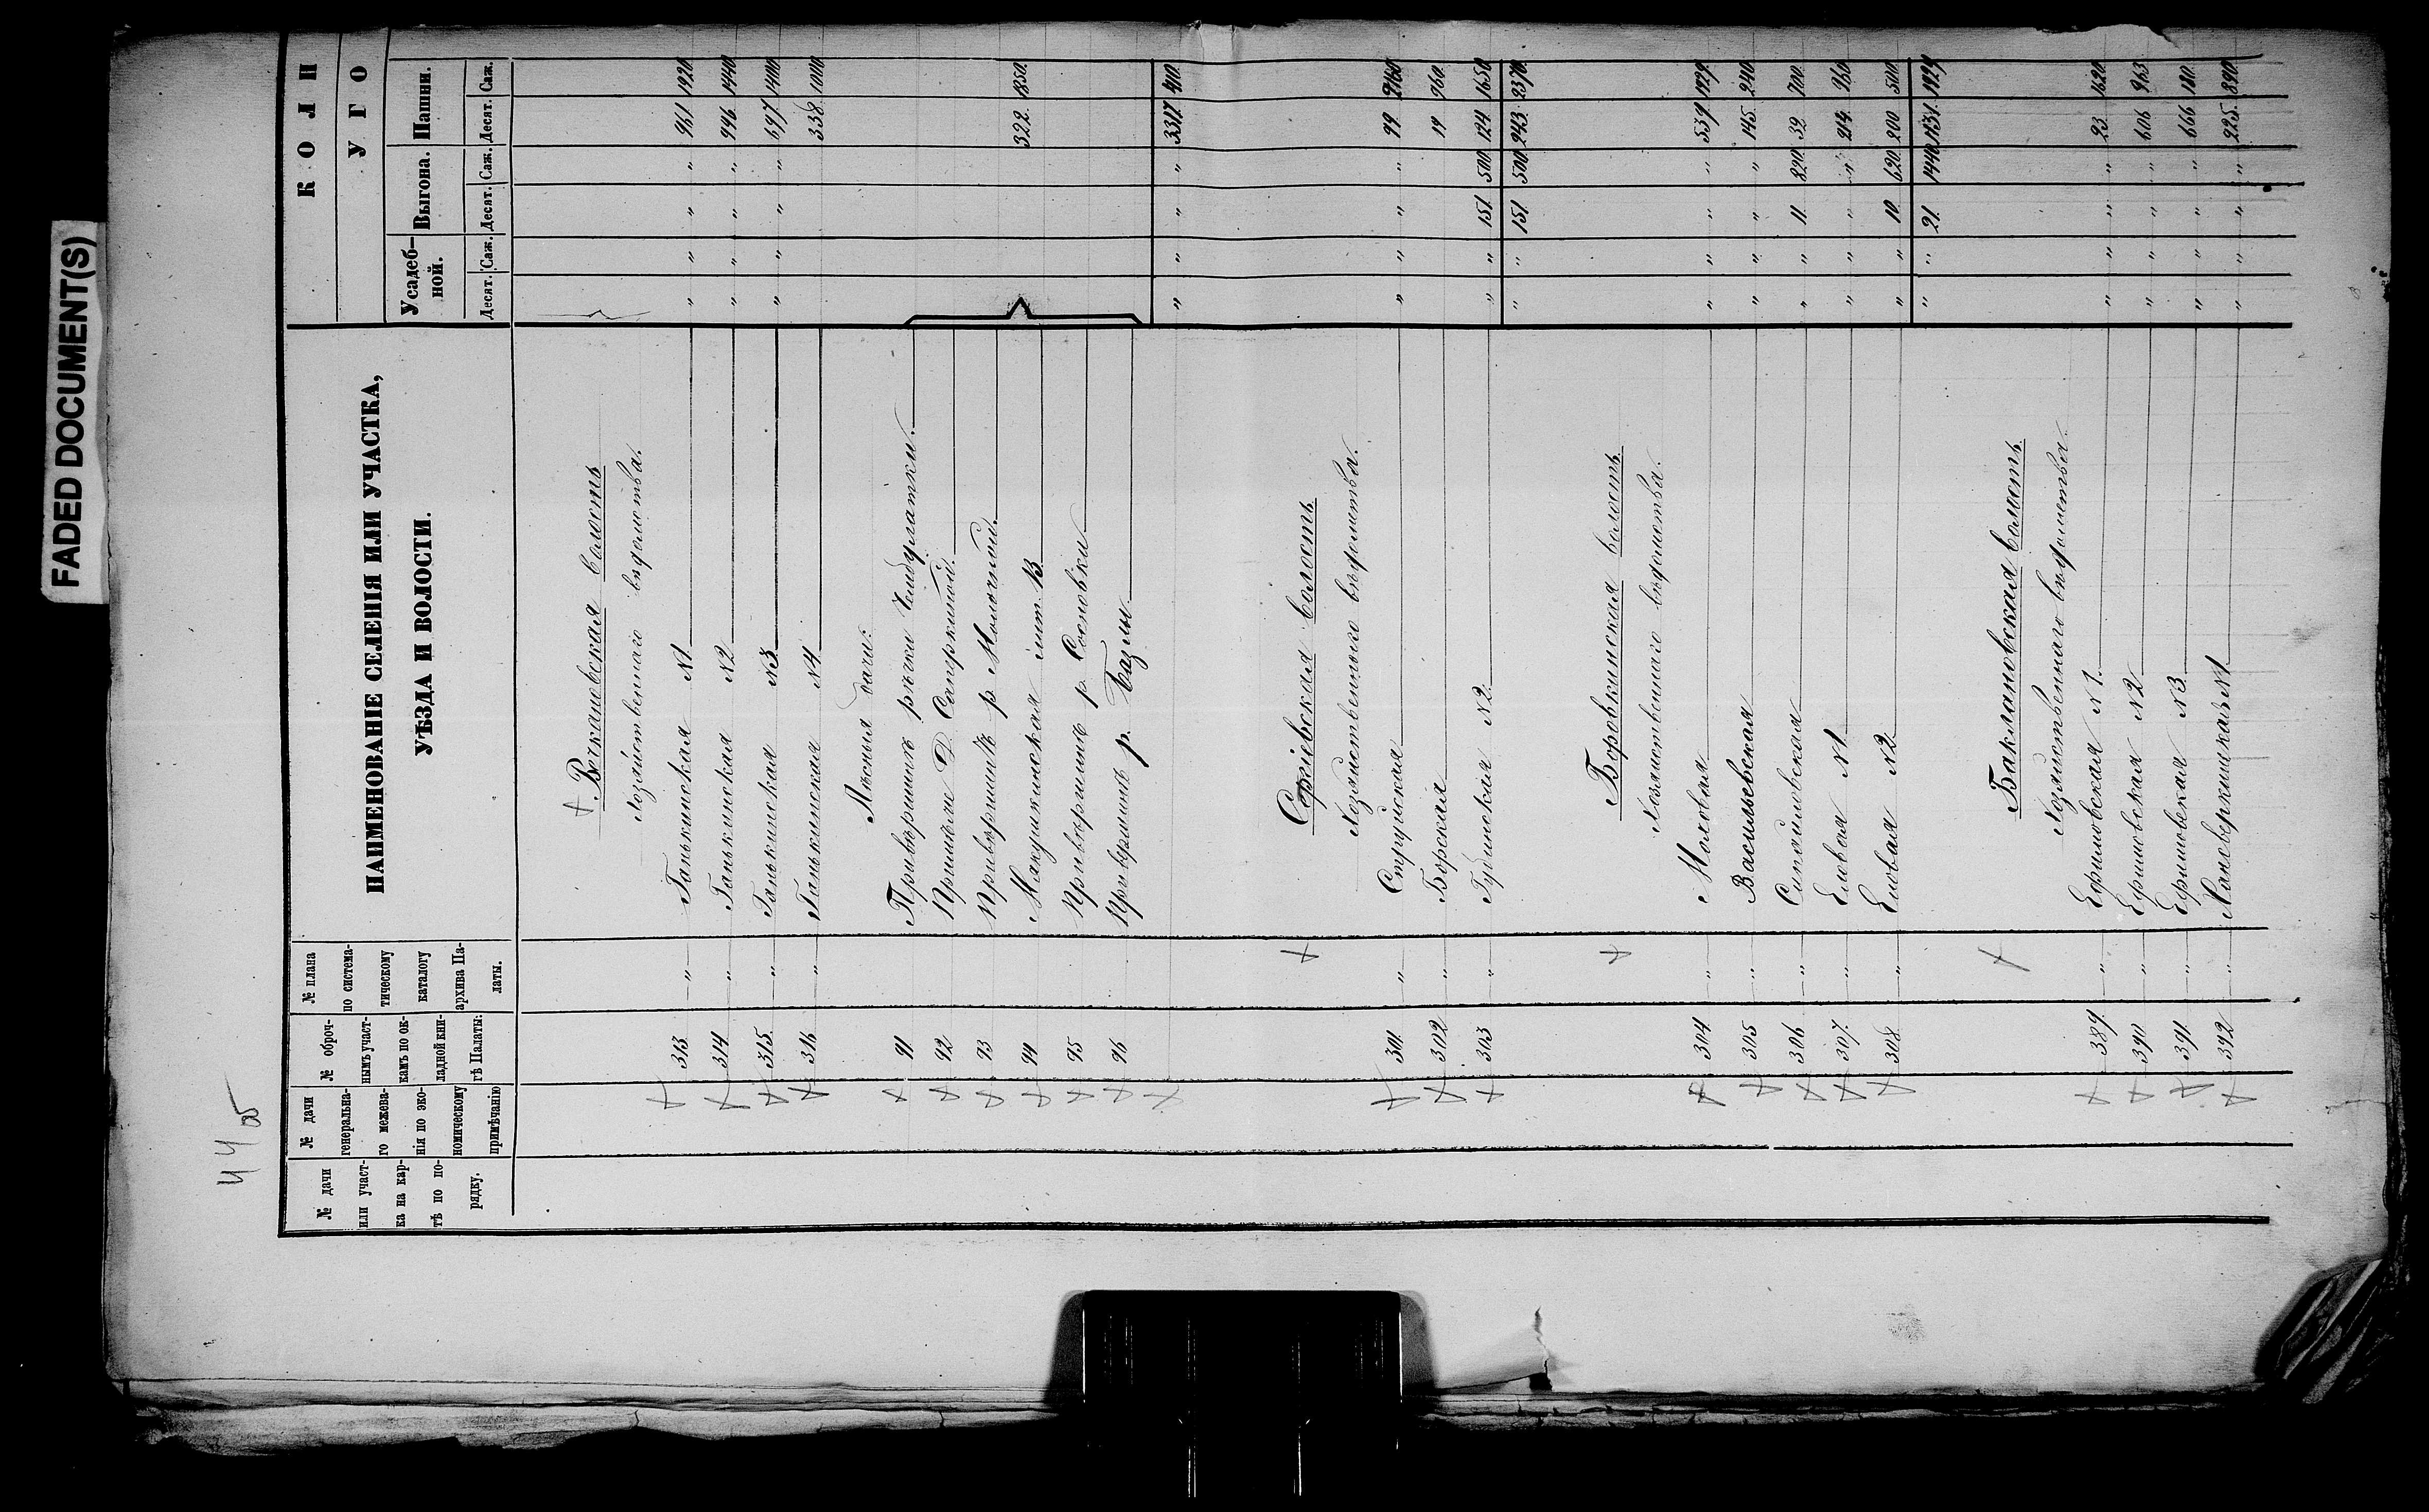 FADED DOCUMENT(S)
44 об
№ дачи или участка на картѣ по порядку.
№ дачи генеральнаго межеванія по экономическому примѣчанію
№ оброчнымъ участкамъ по окладной книгѣ Палаты:
№ плана по систематическому каталогу архива Палаты.
НАИМЕНОВАНІЕ СЕЛЕНІЯ ИЛИ УЧАСТКА,
УѢЗДА И ВОЛОСТИ.
К О Л И
У Г О
Усадебной. Выгона. Пашни.
Десят. Саж. Десят. Саж. Десят. Саж.
Вечкановская волость
Хозяйственнаго вѣдомства.
313 " Ганькинская №1 " " " " 961 1920
314 " Ганькинская №2 " " " " 996 1440
315 " Ганькинская №3 " " " " 697 1400
316 " Ганькинская №4 338 1000
Лѣсныя дачи:
91 При вершинѣ рѣчки
92 При
93 При вершинѣ р Молочной
94 Макушкинская лит. В 322 1850
95 При вершинѣ р Сосновки
96 При вершинѣ р.
" " " " 3317 410
Сергіевская волость
Хозяйственнаго вѣдомства.
301 " Струйская " " " " 99 2160
302 " Борская 19 960
303 " Губинская №2 " " 151 500 124 1650
" " 151 500 243 2370
Боровкинская волость.
Хозяйственнаго вѣдомства.
304 " Моховая " " " " 539 1929
305 " Васильевская " " " " 145 240
306 " " " 11 820 32 700
307 " Еловая №1 " " " " 214 960
308 " Еловая №2 " " 10 620 200 500
" " 21 1440 1131 1929
Баклановская волость
Хозяйственнаго вѣдомства
389 " Ефимовская №1 " " " " 23 1620
390 " Ефимовская №2 " " " " 606 963
391 " Ефимовская №3 " " " " 666 180
392 " №1 " " " " 225 890